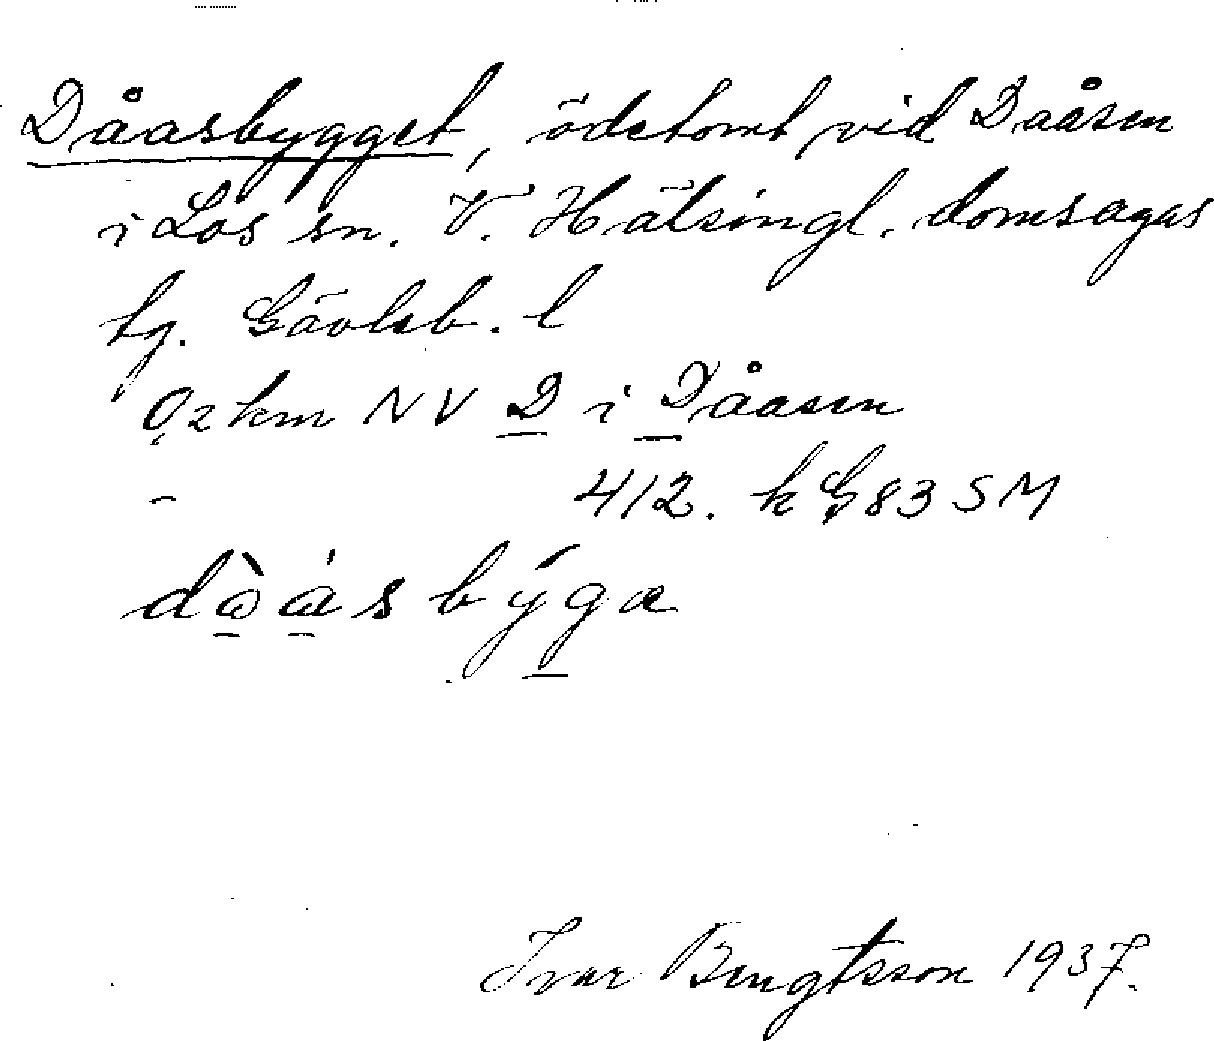 Dåasbygget, ödetomt vid Daåsen
i Los sn. V. Hälsingl. domsagas
tg. Gävleb. l
0,2 km NV D i Dåasen
- 412. k G 83 SM
dɷ̀ɷ́s býga
Ivar Bengtsson 1937.